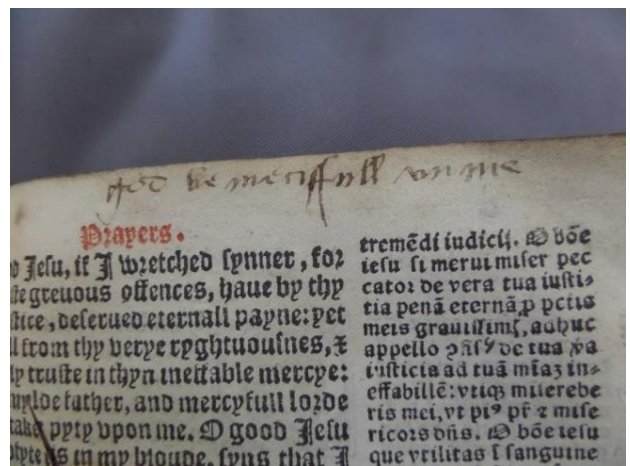 god be merciffull on me
Prayers.
Jeſu, if I wretched ſynner, for
greuous offences, haue by thy
deſerued eternall payne: yet
from thy verye ryghtuouſnes, ⁊
truſte in thyn ineffable mercye:
father, and mercyfull lorde
take pyty vpon me. O good Jeſu
in my bloude, ſyns that I
tremēdi iudicij. O bōe
ieſu ſi merui miſer pec
cator de vera tua iuſti-
tia penā eternā ꝓ pctis
meis grauiſſimꝭ, adhuc
appello de tua
iuſticia ad tuā mīaꝫ in-
effabilē: vtiqꝫ miſerebe
ris mei, vt piꝰ pr̄ ⁊ miſe
ricors dn̄s. O bōe ieſu
que vtilitas ī ſanguine